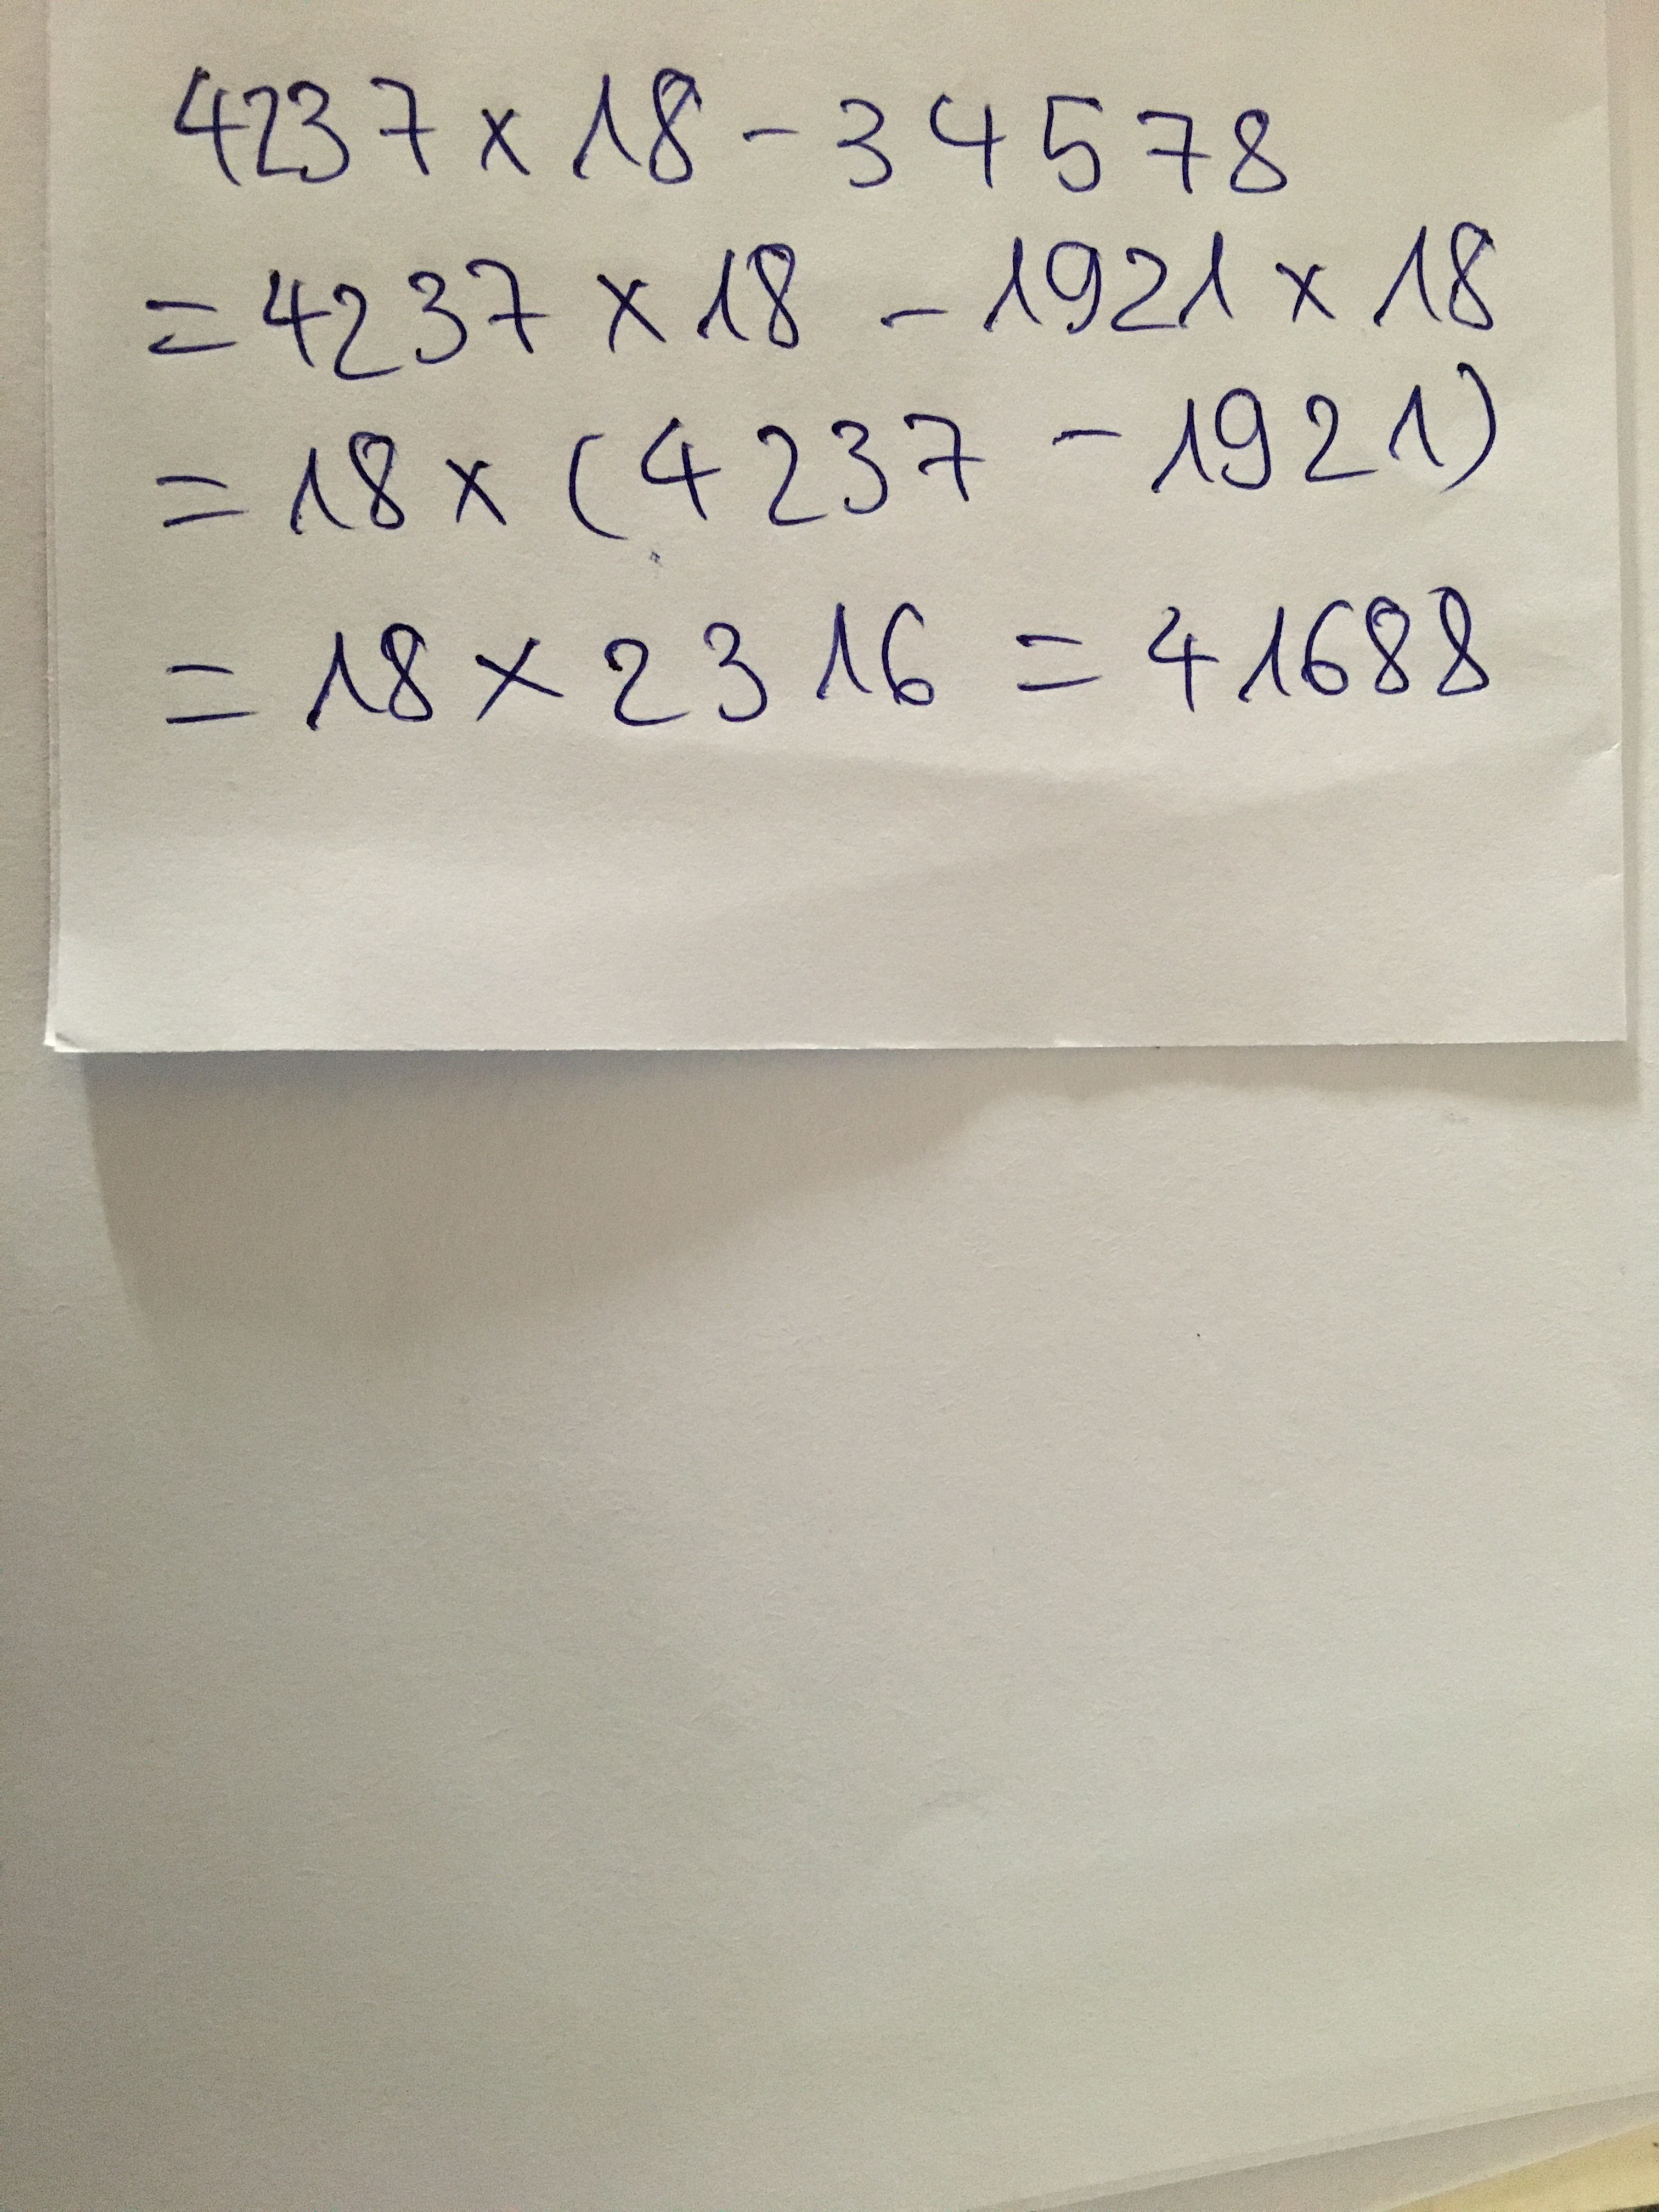 4237 x 18 - 34578
= 4237 x 18 - 1921 x 18
= 18 x (4237 - 1921)
= 18 x 2316 = 41688